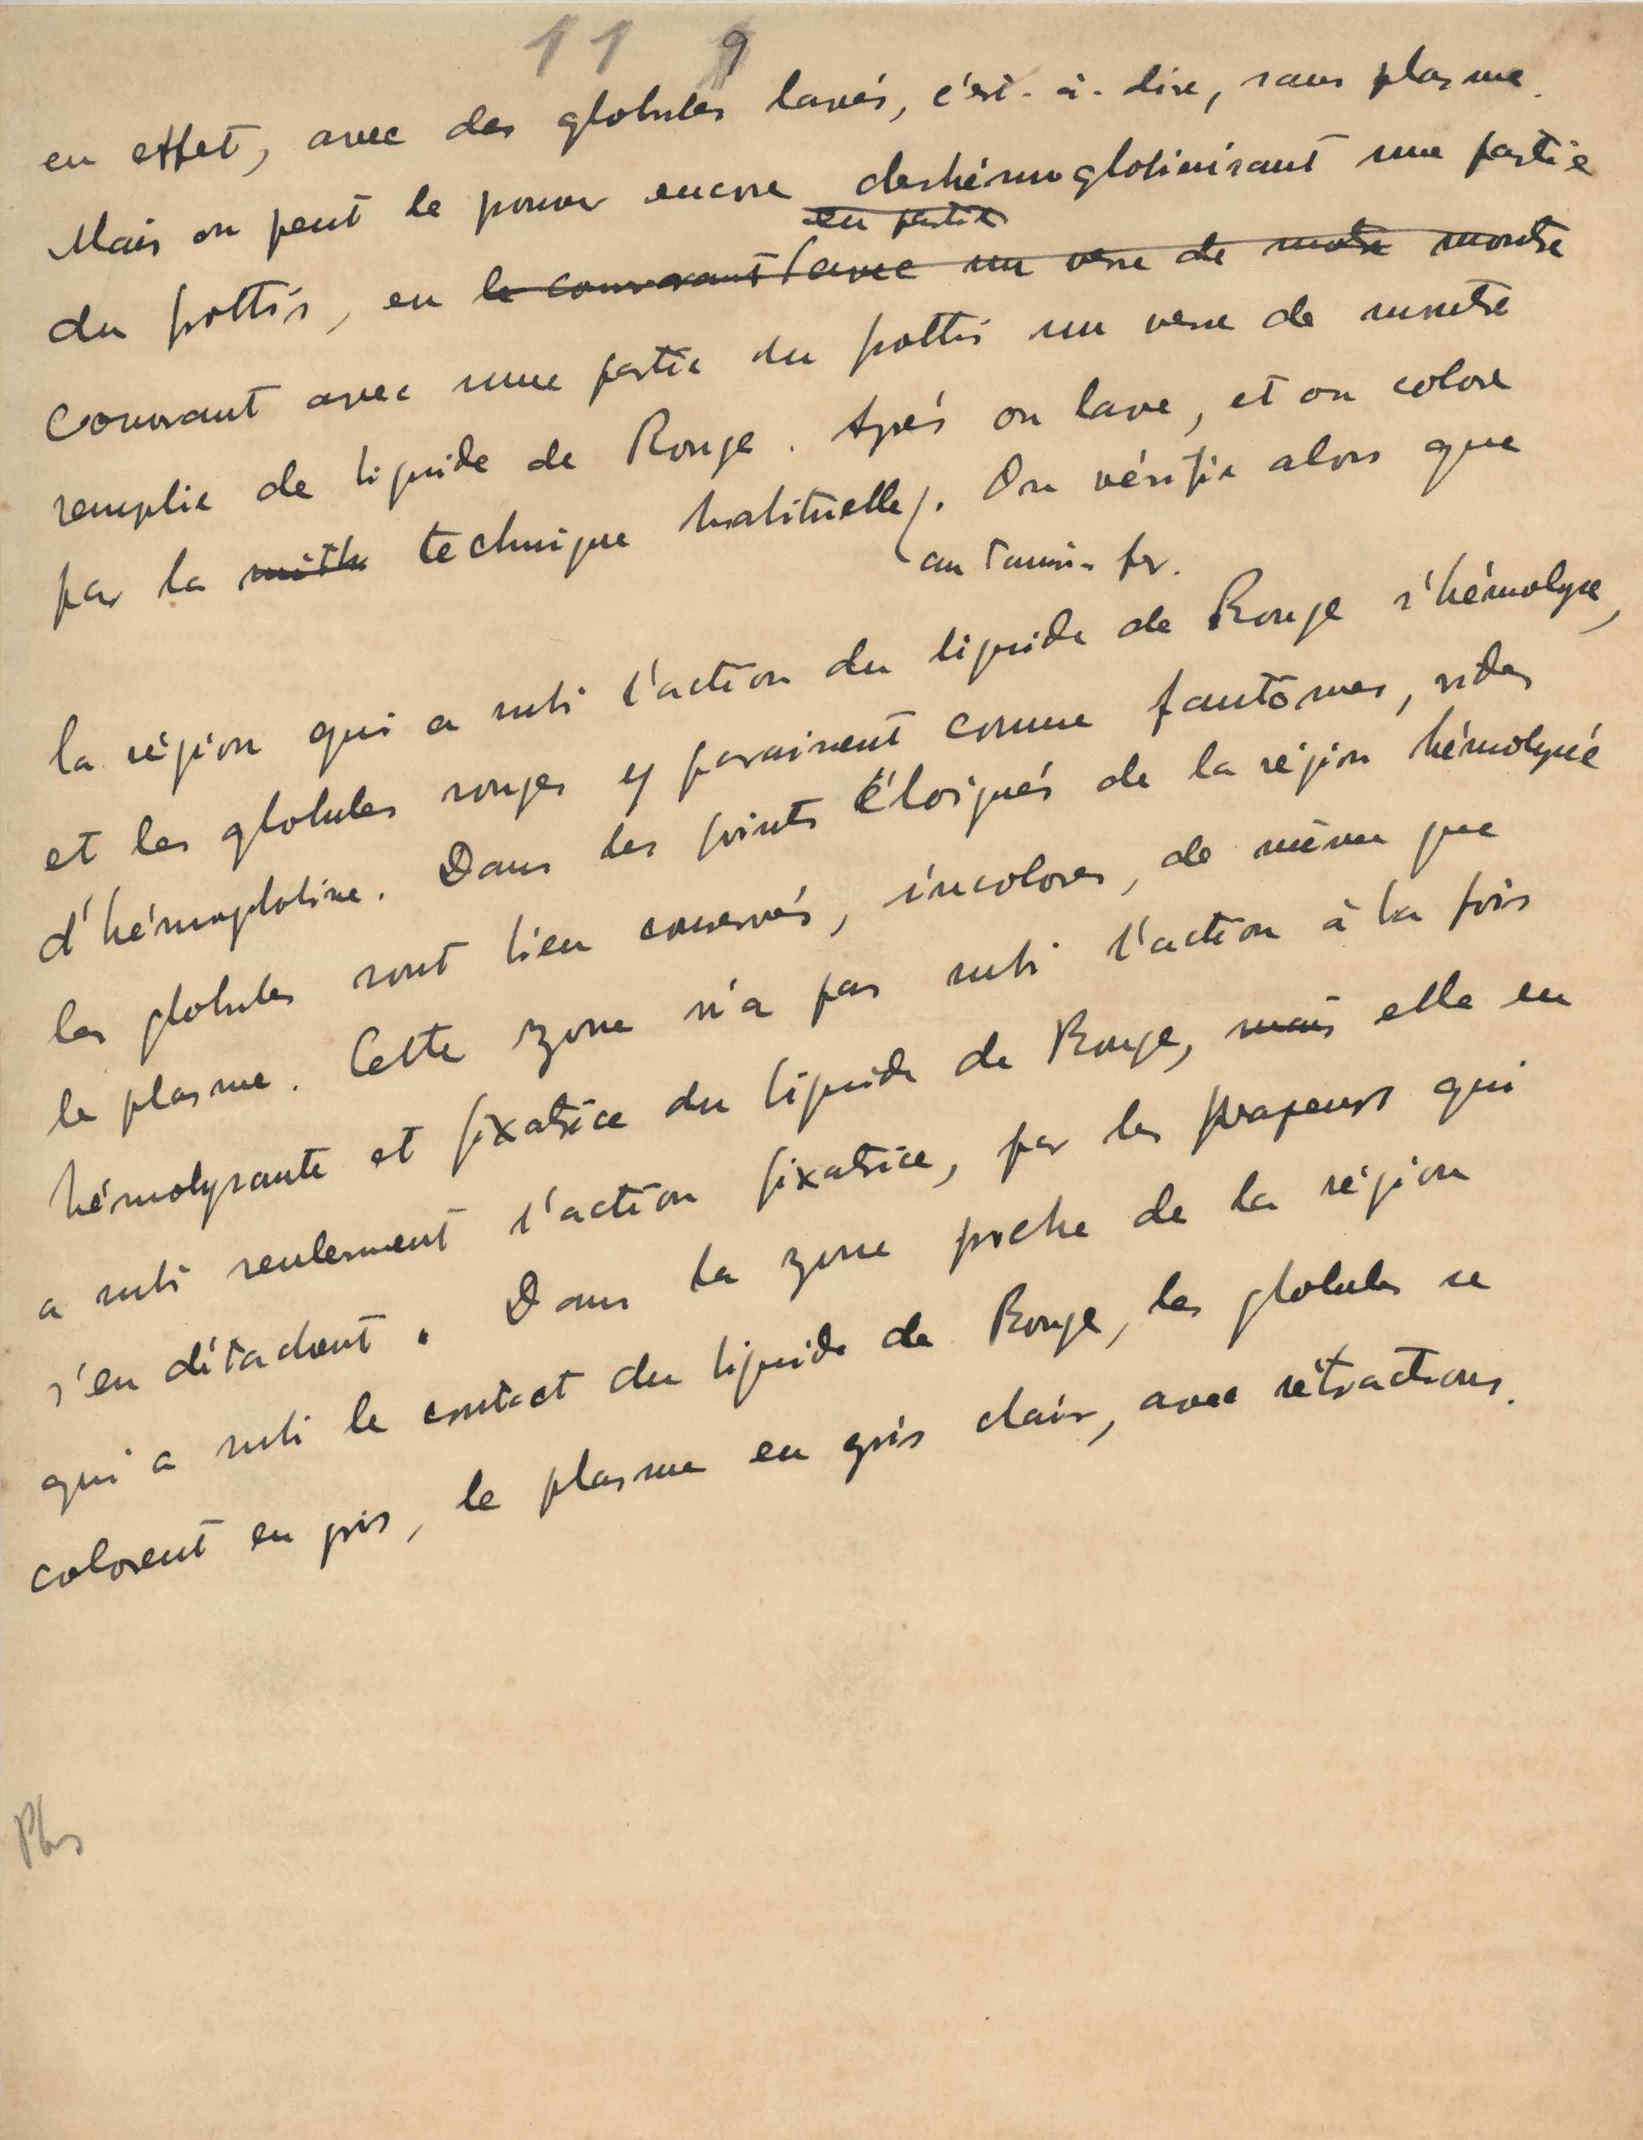 11 9
en effet, avec des globules lavés, c'est-à-dire, sans plasme.
Mais on peut le prouver encore deshémoglobinisant une partie
en partie
du frottis, en le couvrant avec un verre de motre montre
couvrant avec une partie du frottis un verre de montre
remplie de liquide de Rouge. Après on lave, et on colore
par la méth technique habituelle. On vérifie alors que
au tannin-fer.
la région qui a subi l'action du liquide de Rouge s'hémolyse,
et les globules rouges y paraissent comme fantômes, vides
d'hémoglobine. Dans les points éloignés de la région hémolysée
les globules sont bien conservés, incolores, de même que
le plasme. Cette zone n'a pas subi l'action à la fois
hémolysante et fixatrice du liquide de Rouge, mais elle en
a subi seulement l'action fixatrice, par les vapeurs qui
s'en détachent. Dans la zone proche de la région
qui a subi le contact du liquide de Rouge, les globules se
colorent en gris, le plasme en gris clair, avec rétractions.